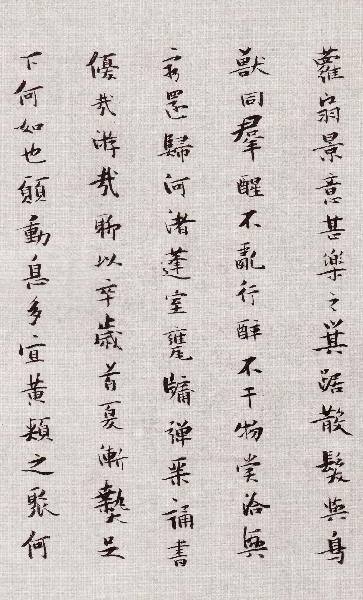 蘿翁景意甚樂之箕踞散髮與鳥
獸同羣醒不亂行醉不干物賞洽興
窮還歸河渚蓬室甕牖彈琴誦書
優哉游哉聊以卒歲首夏漸熱足
下何如也願動息多宜黃頰之聚何